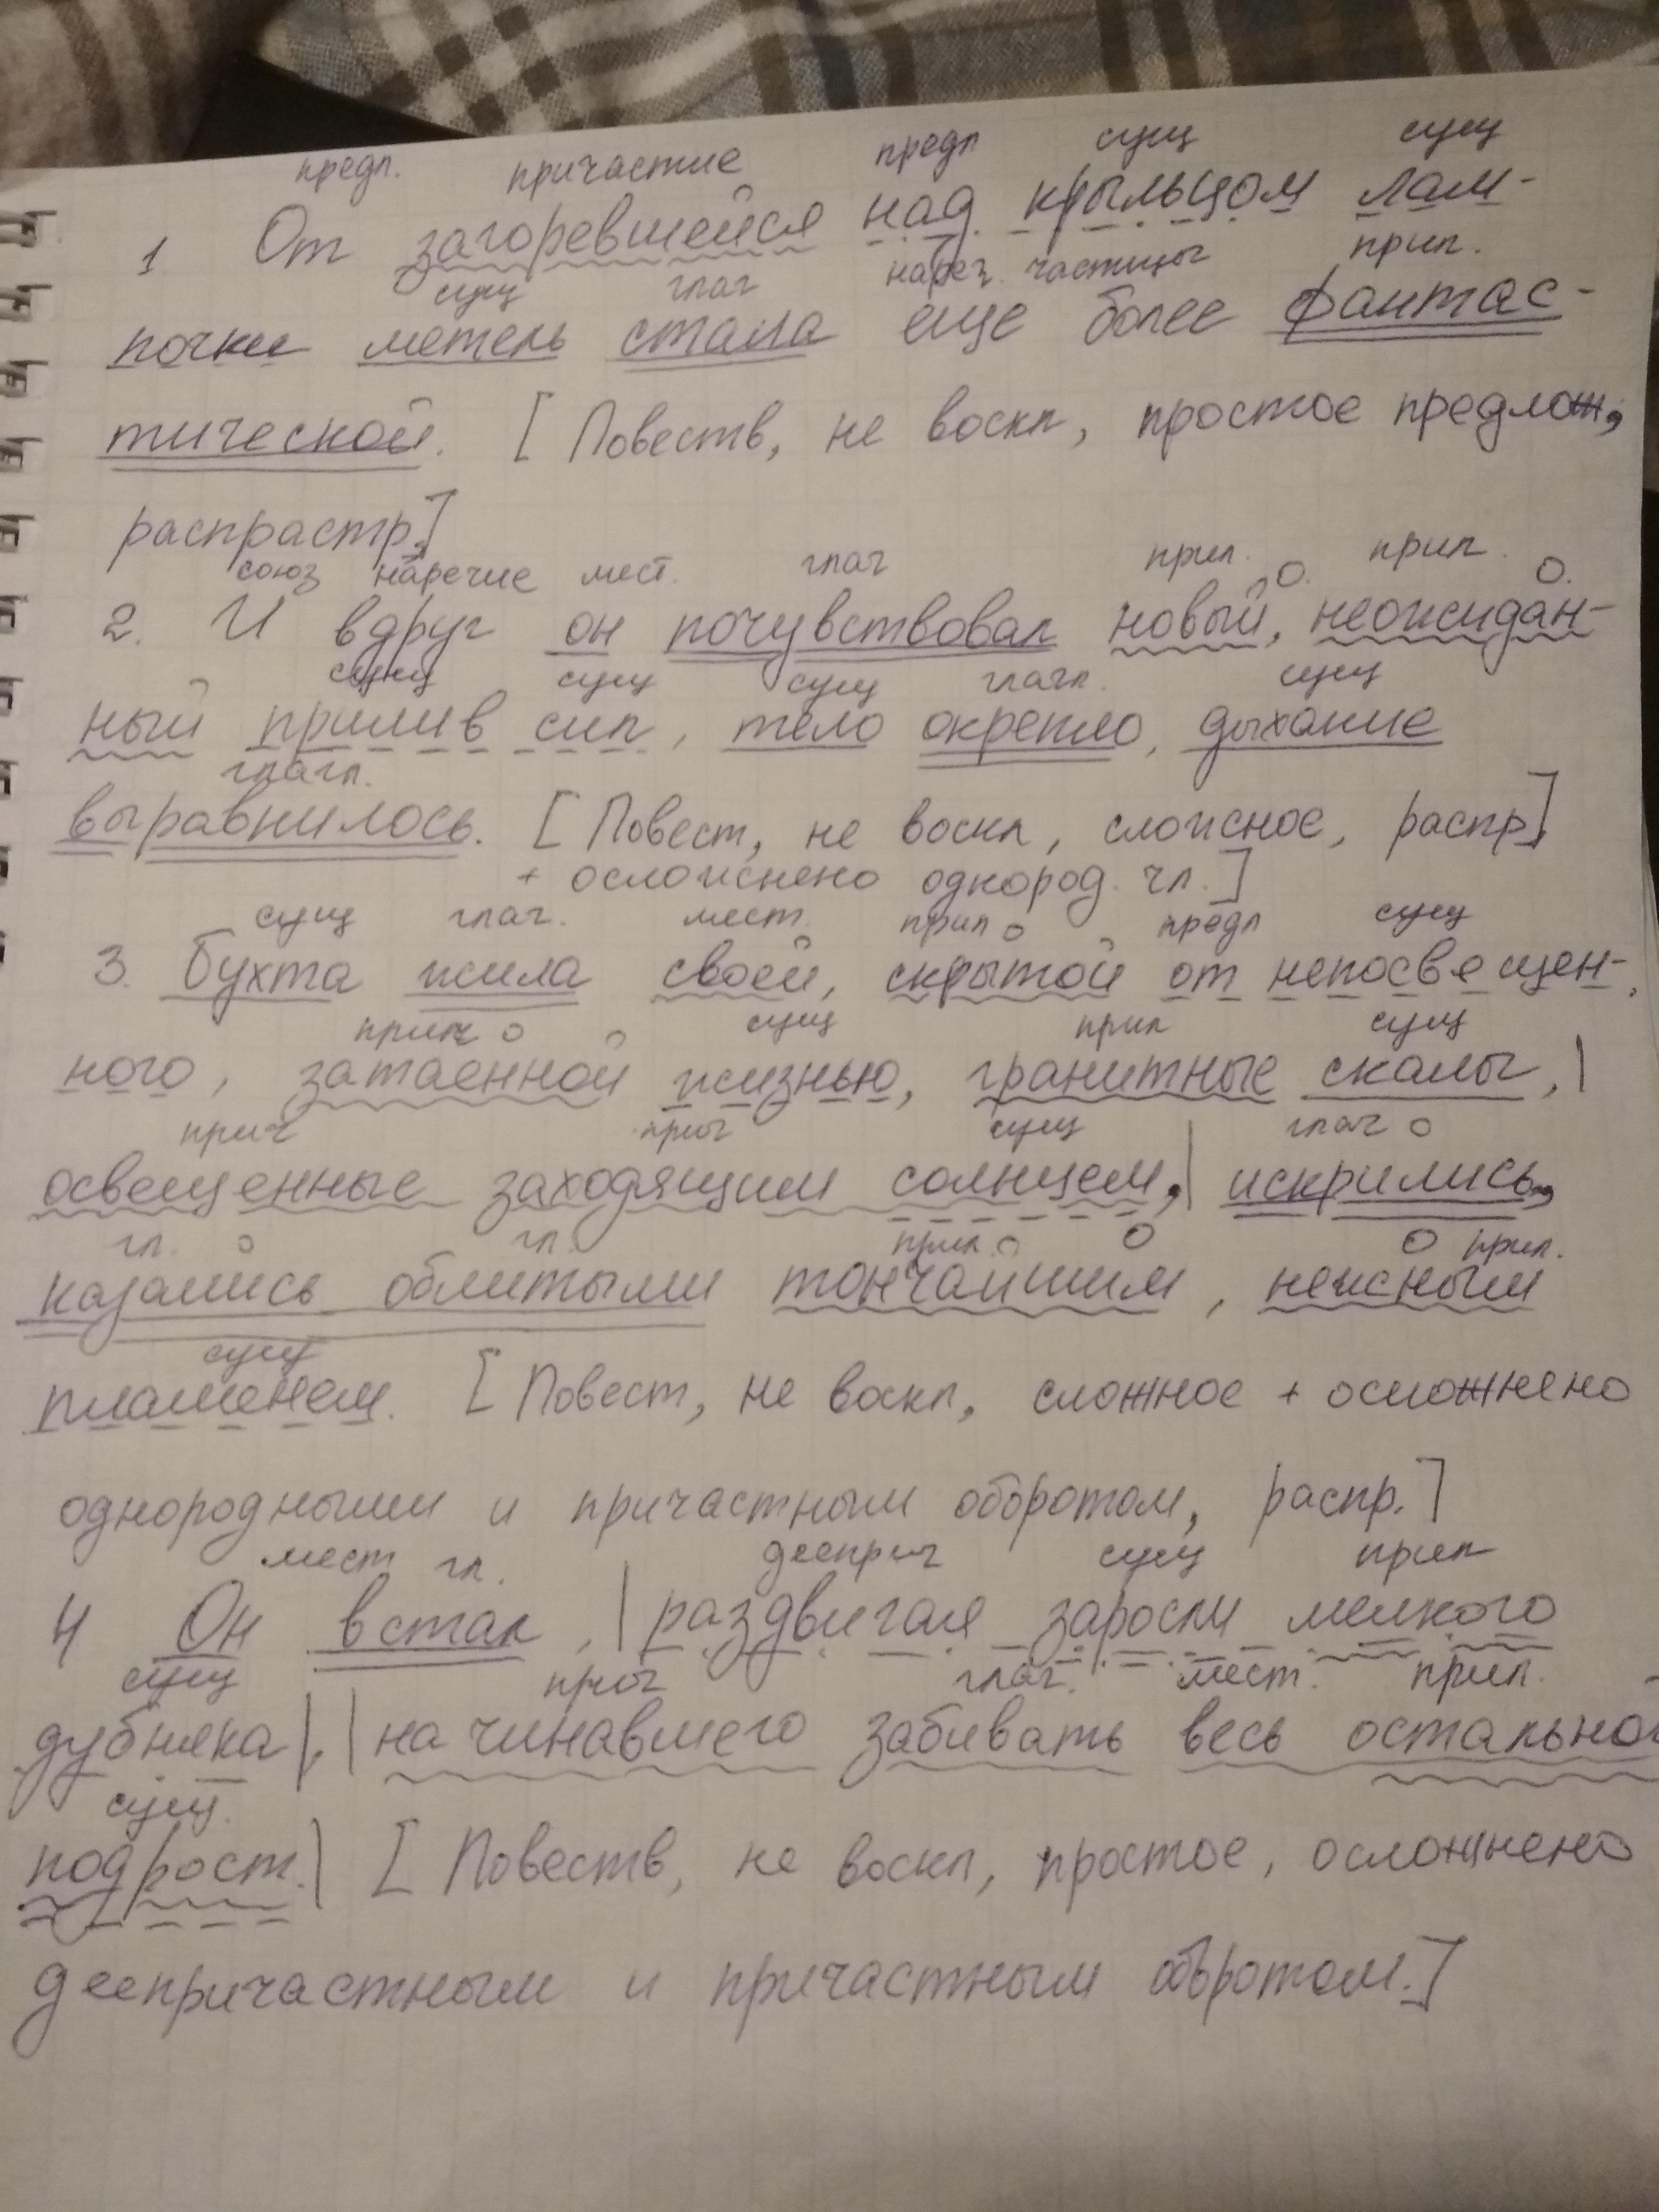 предл. причастие предл сущ сущ
1 От загоревшейся над крыльцом лам-
сущ глаг нареч. частицы прил.
почки метель стала еще более фантас-
тической. [ Повеств, не воскл, простое предлож,
распрастр.]
союз наречие мест. глаг прил. о. прил. о.
2. И вдруг он почувствовал новый, неожидан-
сущ сущ сущ глагл. сущ
ный прилив сил, тело окрепло, дыхание
глагл.
выравнилось. [ Повест, не воскл, сложное, распр]
+ осложнено однород. чл.]
сущ глаг. мест. прил о предл сущ
3. Бухта жила своей, скрытой от непосвещен-
прич о сущ прил сущ
ного, затаенной жизнью, гранитные скалы, |
прич прич сущ глаг о
освещенные заходящим солнцем,| искрились,
гл. о гл. прил. о о о прил.
казались облитыми тончайшим, нежным
сущ
пламенем. [ Повест, не воскл, сложное + осложнено
однородными и причастным оборотом, распр.]
мест гл. дееприч сущ прил
4 Он встал, | раздвигая заросли мелкого
сущ прич глаг. мест. прил.
дубняка|,| начинавшего забивать весь остальной
сущ.
подрост.| [ Повеств, не воскл, простое, осложнено
деепричастным и причастным обротом.]